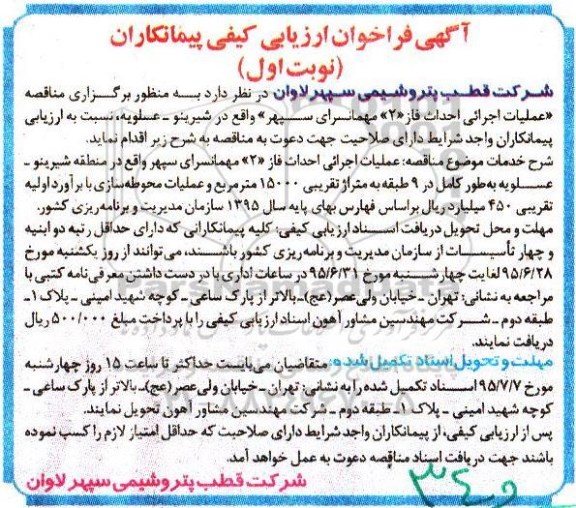 آگهی فراخوان ارزیابی کیفی پیمانکاران
(نوبت اول)
شرکت قطب پتروشیمی سپهر لاوان در نظر دارد بـه منظور برگزاری مناقصه
«عملیات اجرائی احداث فاز «۲» مهمانسرای سـپهر» واقع در شیرینو ـ عسلویه، نسبت به ارزیابی
پیمانکاران واجد شرایط دارای صلاحیت جهت دعوت به مناقصه به شرح زیر اقدام نماید.
شرح خدمات موضوع مناقصه: عملیات اجرائی احداث فاز «۲» مهمانسرای سپهر واقع در منطقه شیرینو ـ
عسـلویه به‌طور کامل در ۹ طبقه به متراژ تقریبی ۱۵۰۰۰ مترمربع و عملیات محوطه‌سازی با برآورد اولیه
تقریبی ۴۵۰ میلیارد ریال براساس فهارس بهای پایه سال ۱۳۹۵ سازمان مدیریت و برنامه‌ریزی کشور.
مهلت و محل تحویل دریافت اسـناد ارزیابی کیفی: کلیه پیمانکارانی که دارای حداقل رتبه دو ابنیه
و چهار تأسیسـات از سازمان مدیریت و برنامه‌ریزی کشور باشـند، می‌توانند از روز یکشنبه مورخ
۹۵/۶/۲۸ لغایت چهارشـنبه مورخ ۹۵/۶/۳۱ در ساعات اداری با در دست داشتن معرفی‌نامه کتبی با
مراجعه به نشانی: تهران ـ خیابان ولی‌عصر(عج)ـ بالاتر از پارک ساعی ـ کوچه شهید امینی ـ پلاک ۱ـ
طبقه دوم ـ شـرکت مهندسین مشاور آهون اسناد ارزیابی کیفی را با پرداخت مبلغ ۵۰۰/۰۰۰ ریال
دریافت نمایند.
مهلت و تحویل اسناد تکمیل شده: متقاضیان می‌بایست حداکثر تا ساعت ۱۵ روز چهارشنبه
مورخ ۹۵/۷/۷ اسـناد تکمیل شده را به نشانی: تهران ـ خیابان ولی‌عصر (عج)ـ بالاتر از پارک ساعی ـ
کوچه شهید امینی ـ پلاک ۱ـ طبقه دوم ـ شرکت مهندسین مشاور آهون تحویل نمایند.
پس از ارزیابی کیفی، از پیمانکاران واجد شرایط دارای صلاحیت که حداقل امتیاز لازم را کسب نموده
باشند جهت دریافت اسناد مناقصه دعوت به عمل خواهد آمد.
شرکت قطب پتروشیمی سپهر لاوان